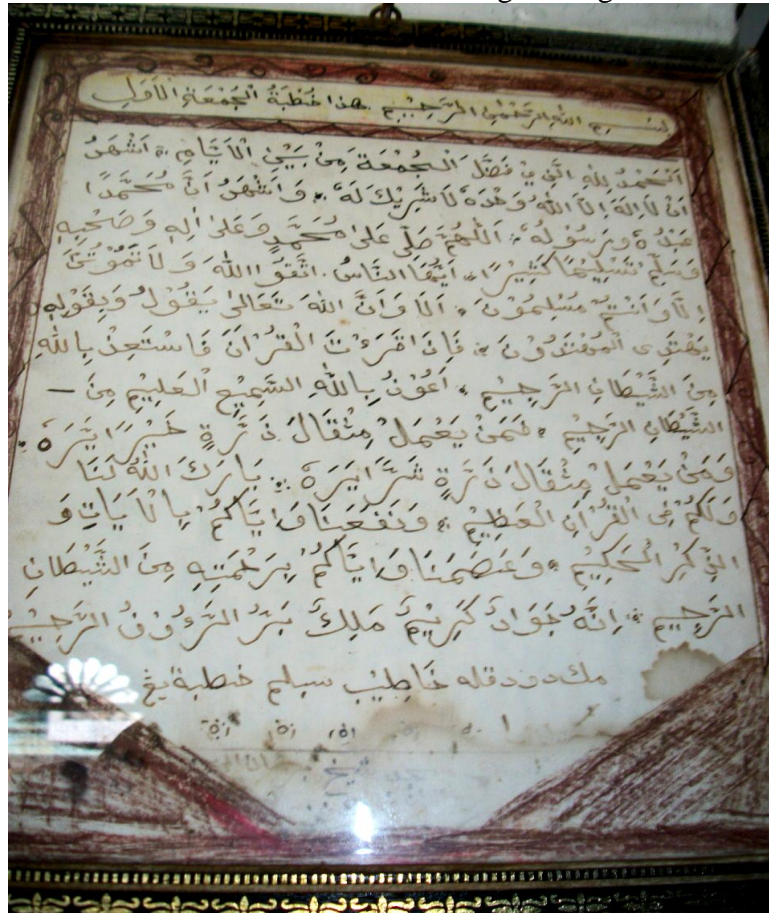 بسم الله الرحمن الرحيم هذا خطبة الجمعة الأول
اَلْحَمْدُ لِلّٰهِ الَّذِيْ فَضَّلَ الْجُمْعَةَ مِنْ بَيْنِ الْاَيَّامِ ؞ اَشْهَدُ
اَنْ لَااِلٰهَ اِلَّا اللّٰهُ وَحْدَهٗ لَاشَرِيْكَ لَهٗ ؞ وَاَشْهَدُ اَنَّ مُحَمَّدًا
عَبْدُهٗ وَرَسُوْلُهٗ ؞ اَللّٰهُمَّ صَلِّى عَلٰى مُحَمَّدٍ وَعَلٰى اٰلِهٖ وَصَحْبِهٖ
وَسَلِّمْ تَسْلِيْمًا كَثِيْرًا ؞ اَيُّهَا النَّاسُ ؞ اتَّقُوا اللّٰهَ وَلَا تَمُوْتُنَّ
اِلَّا وَاَنْتُمْ مُسْلِمُوْنَ ؞ اَلَا وَاَنَّ اللّٰهَ تَعَالٰى يَقُوْلُ وَبِقَوْلِهٖ
يَهْتَدِى الْمُهْتَدُوْنَ ؞ فَاِذَا قَرَءْتَ الْقُرْاٰنَ فَاسْتَعِذْ بِاللّٰهِ
مِنَ الشَّيْطَانِ الرَّجِيْمِ ؞ اَعُوْذُ بِاللّٰهِ السَّمِيْعِ الْعَلِيْمِ مِنَ —
الشَّيْطَانِ الرَّجِيْمِ ؞ فَمَنْ يَعْمَلْ مِثْقَالَ ذَرَّةٍ خَيْرًا يَرَهٗ ؞
وَمَنْ يَعْمَلْ مِثْقَالَ ذَرَّةٍ شَرًّا يَرَهٗ ؞ بَارَكَ اللّٰهُ لَنَا
وَلَكُمْ فِى الْقُرْاٰنِ الْعَظِيْمِ ؞ وَنَفَعَنَا وَاِيَّاكُمْ بِالْاٰيَاتِ وَ
الذِّكْرِ الْحَكِيْمِ ؞ وَعَصَمَنَا وَاِيَّاكُمْ بِرَحْمَتِهٖ مِنَ الشَّيْطَانِ
الرَّجِيْمِ ؞ اِنَّهٗ جَوَادٌ كَرِيْمٌ مَلِكٌ بَرٌّ الرَّءُوْفُ الرَّحِيْمُ
مك دودقله خاطيب سبلم خطبة يڠ